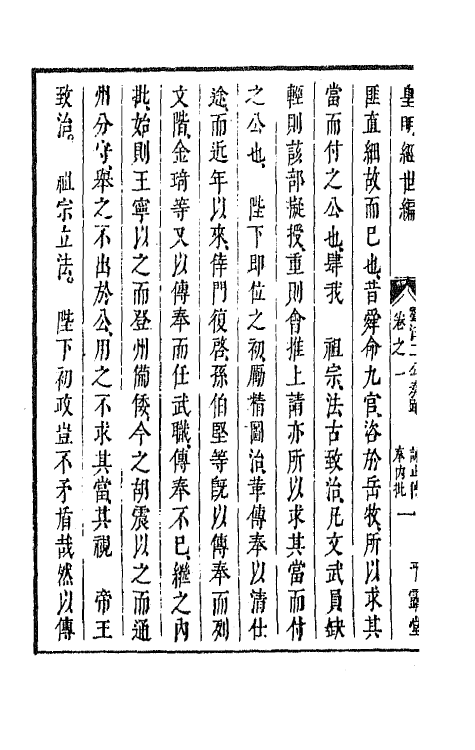 皇明經世編
卷之一
奉內批
一
平露堂
匪直細故而已也昔舜命九官咨於岳牧所以求其
當而付之公也肆我　祖宗法古致治凡文武員缺
輕則該部擬授重則會推上請亦所以求其當而付
之公也　陛下即位之初厲精圖治革傳奉以清仕
途而近年以來倖門復啓孫伯堅等旣以傳奉而列
文階金琦等又以傳奉而任武職傳奉不已繼之內
批始則王寧以之而登州備倭今之胡震以之而通
州分守舉之不出於公用之不求其當其視　帝王
致治。祖宗立法。陛下初政豈不矛盾哉然以傳